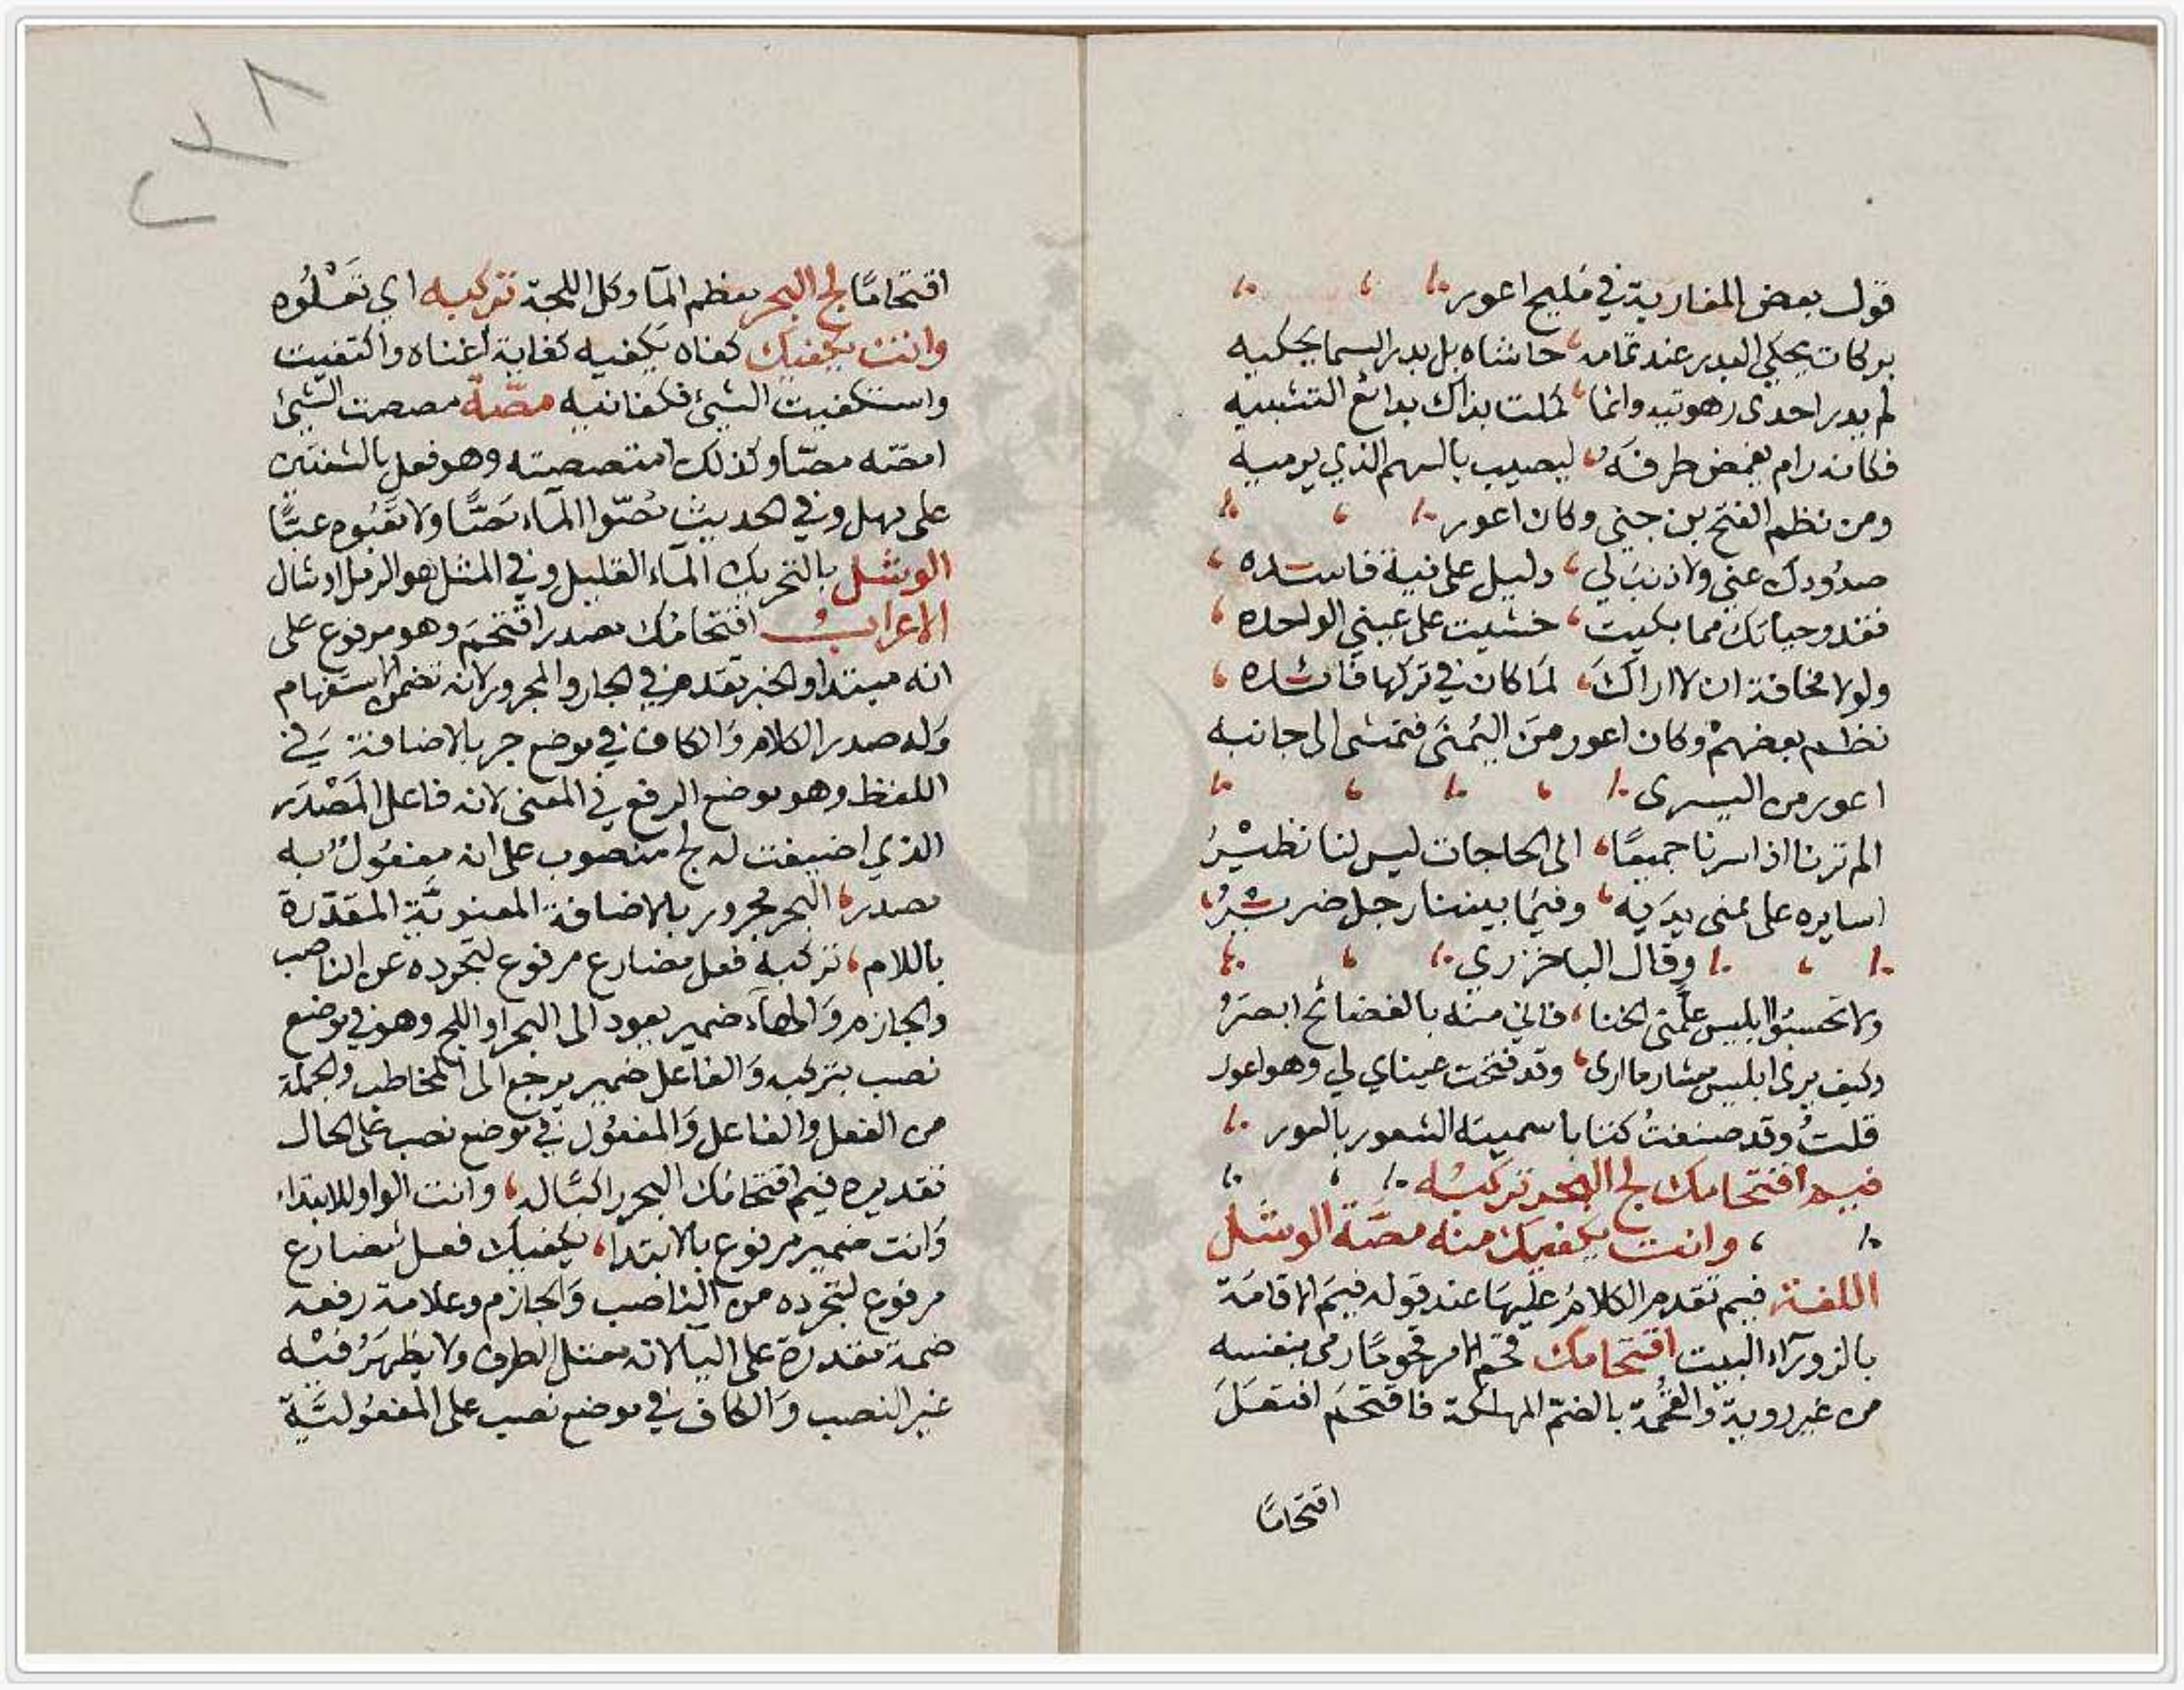 قول بعض المغاربة في مليح اعور
بو كان يحكي البدر عند تمامه حاشاه بل بدر السما يحكيه
لم يدر احدى زهوتيه وانما كملت بذاك بدائع التشبيه
فكانه رام بغمض طرفه ليصيب بالسهم الذي يرميه
ومن نظم الفتح بن جني وكان اعور
صدُودك عني ولا ذنب لي دليل على نية فاسده
فقد وحياتك مما بكيت خشيت على عيني الواحده
ولولا مخافة ان لا اراك لما كان في تركها فائده
نظم بعضهم وكان اعور من اليُمنَى فتمشى الى جانبه
اعور من اليسرى
الم ترنا اذا سرنا جميعًا الى الحاجات ليس لنا نظيرُ
اسايره على يمنى يديه وفيما بيننا رجل ضريرُ
وقال الباخرزي
ولا تحسبُوا ابليس علمني الخنا فاني منه بالفضائح ابصَرُ
وكيف يرى ابليس معشار ما ارى وقد فتحت عيناي لي وهو اعور
قلتُ وقد صنفتُ كتابا سميته الشعور بالعور
فيم اقتحامك لج البحر تركبُه
وانت يكفيك منه مصّة الوشل
اللغة فيم تقدم الكلامُ عليهَا عند قوله فيمَ الاقامَة
بالزوراء البيت اقتحامك قحم الامر قحومًا رمى بنفسه
من غير روية والقُحمة بالضم المهلكة فاقتحَم افتعَلَ
اقتحامًا
٢٧٨
اقتحامًا لج البحر معظم المآ وكل اللجة تركبه اي تَعْلُوه
وانت يكفيك كفاه يكفيه كفاية اغناه واكتفيت
واستكفيت الشيئ فكفانيه مصّة مصصت الشيئ
امصّه مصّا وكذلك امتصصته وهو فعل بالشفتين
على مهل وفي الحديث مُصّوا المآء مَصًّا ولا تعُبّوه عبًّا
الوشل بالتحريك المآء القليل وفي المثل هو الرمل اوشال
الاعراب اقتحامُك مصدر اقتحمَ وهو مرفوع على
انه مبتدا والخبر تقدم في الجار والمجرور لانه تضمن الاستفهام
وَله صدر الكلام وَالكاف في موضع جر بالاضافة في
اللفظ وهو موضع الرفع في المعنى لانه فاعل المَصْدَر
الذي اضيفت له لج منصوب على انه مفعُولٌ به
مصدر البحر مجرور بالاضافة المعنويَّة المقدّرة
باللام تركبه فعل مضارع مرفوع لتجرده عن الناصب
والجازم وَالهآء ضمير يعود الى البحر او اللج وهو في موضع
نصب بتركبه وَالفاعل ضمير يرجع الى المخاطب والجملة
من الفعل والفاعل وَالمفعُول في موضع نصب على الحال
تقديره فيم اقتحامُك البحر راكبًا له وانت الواو للابتداء
وَانت ضمير مرفوع بالابتدا يكفيك فعل مضارع
مرفوع لتجرده من الناصب وَالجازم وعلامة رفعه
ضمة مقدرة على اليا لانه معتل الطرف ولا يظهَرُ فيْه
غير النصب وَالكاف في موضع نصب على المفعُوليَّة